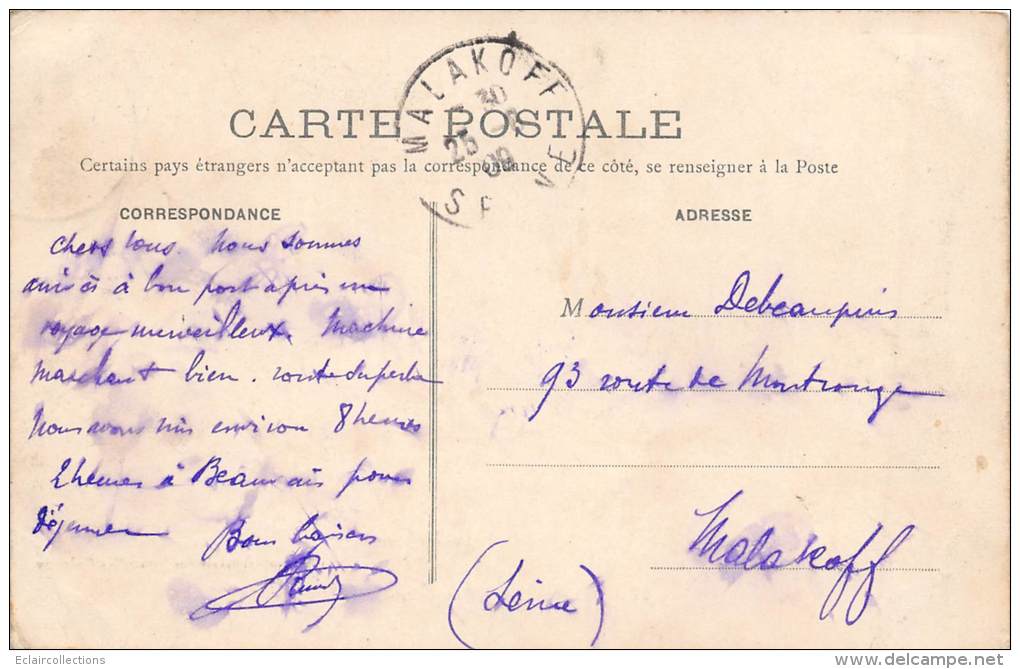 MALAKOFF
30
25
09
SEINE
CARTE POSTALE
Certains pays étrangers n'acceptent pas la correspondance de ce côté, se renseigner à la Poste
CORRESPONDANCE
chers tous. Nous sommes
arrivés à bon port après un
voyage merveilleux. Machine
marchant bien. route superbe
Nous avons mis environ 8 heures
2 heures à Beauvais pour
déjeuner
Bons baisers
ADRESSE
Monsieur Debeaupuis
93 route de Montrouge
Malakoff
(Seine)
Eclaircollections
www.delcampe.net